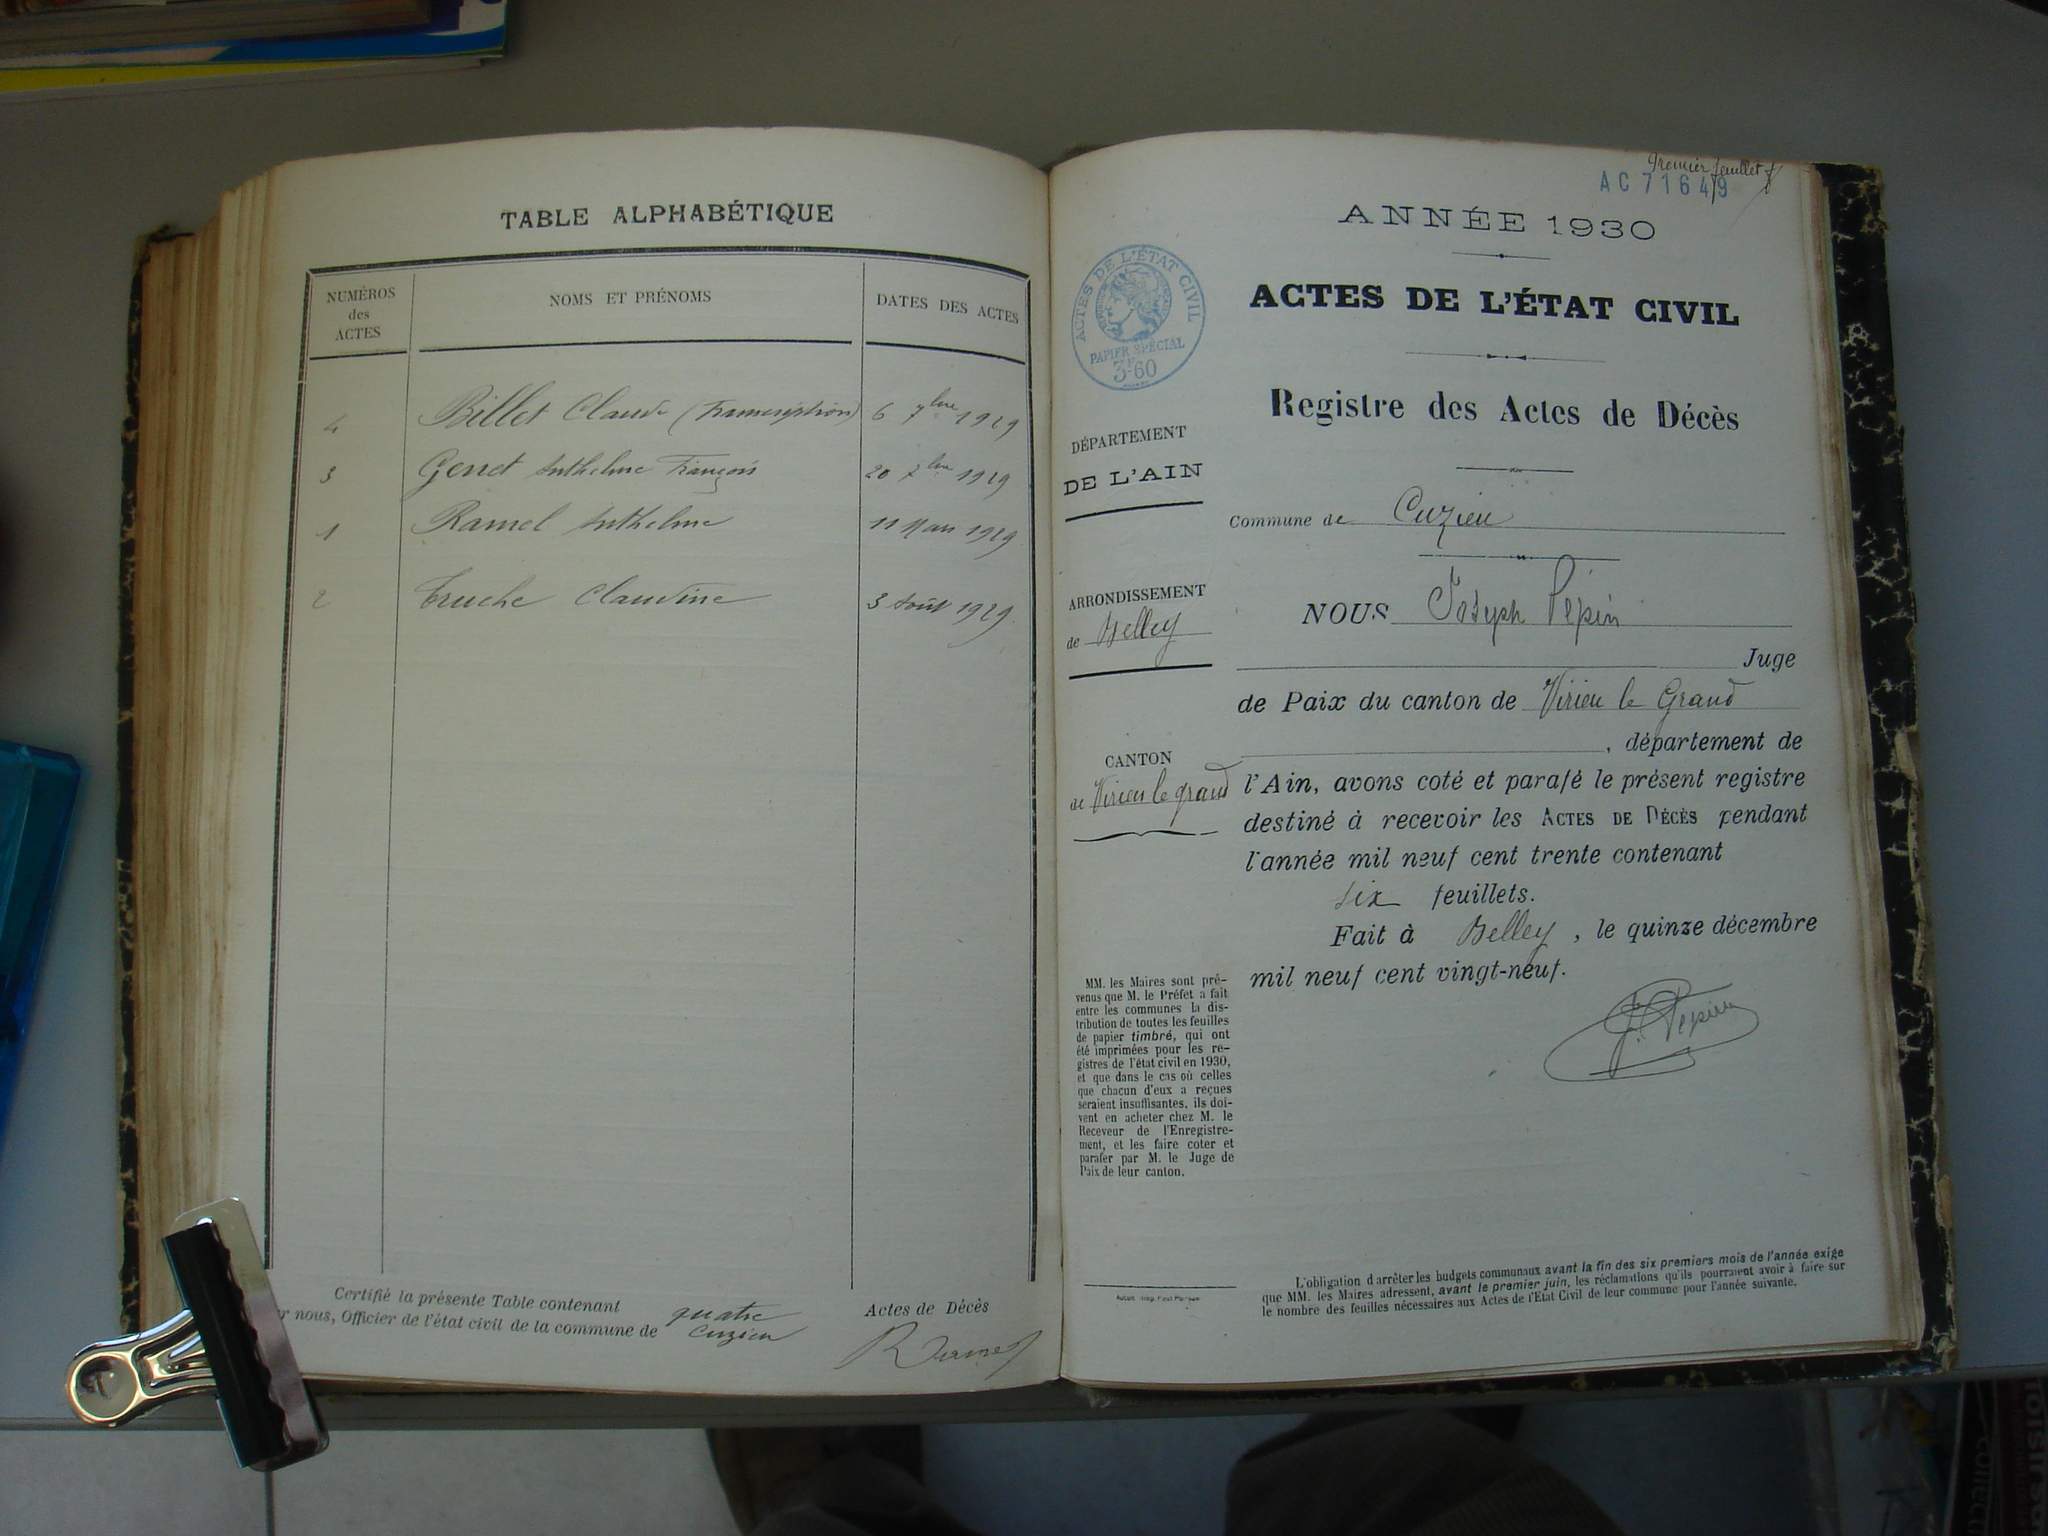 TABLE ALPHABÉTIQUE
NUMÉROS
des
ACTES
NOMS ET PRÉNOMS
DATES DES ACTES
4 Billet Claude (Transcription) 6 7bre 1929
3 Genet Anthelme François 20 7bre 1929
1 Ramel Anthelme 11 Mars 1929
2 Truche Claudine 3 Août 1929
Certifié la présente Table contenant quatre Actes de Décès
r nous, Officier de l'état civil de la commune de Cuzieu
Premier feuillet
AC 71649
ANNÉE 1930
ACTES DE L'ÉTAT CIVIL
PAPIER SPÉCIAL
3F60
ACTES DE L'ÉTAT CIVIL
Registre des Actes de Décès
DÉPARTEMENT
DE L'AIN
Commune de Cuzieu
ARRONDISSEMENT
de Belley
NOUS Joseph Pépin
Juge
de Paix du canton de Virieu le Grand
, département de
CANTON
de Virieu le grand
l'Ain, avons coté et parafé le présent registre
destiné à recevoir les ACTES DE DÉCÈS pendant
l'année mil neuf cent trente contenant
six feuillets.
Fait à Belley, le quinze décembre
mil neuf cent vingt-neuf.
J. Pépin
MM. les Maires sont pré-
venus que M. le Préfet a fait
entre les communes la dis-
tribution de toutes les feuilles
de papier timbré, qui ont
été imprimées pour les re-
gistres de l'état civil en 1930,
et que dans le cas où celles
que chacun d'eux a reçues
seraient insuffisantes, ils doi-
vent en acheter chez M. le
Receveur de l'Enregistre-
ment, et les faire coter et
parafer par M. le Juge de
Paix de leur canton.
L'obligation d'arrêter les budgets communaux avant la fin des six premiers mois de l'année exige
que MM. les Maires adressent, avant le premier juin, les réclamations qu'ils pourraient avoir à faire sur
le nombre des feuilles nécessaires aux Actes de l'État Civil de leur commune pour l'année suivante.